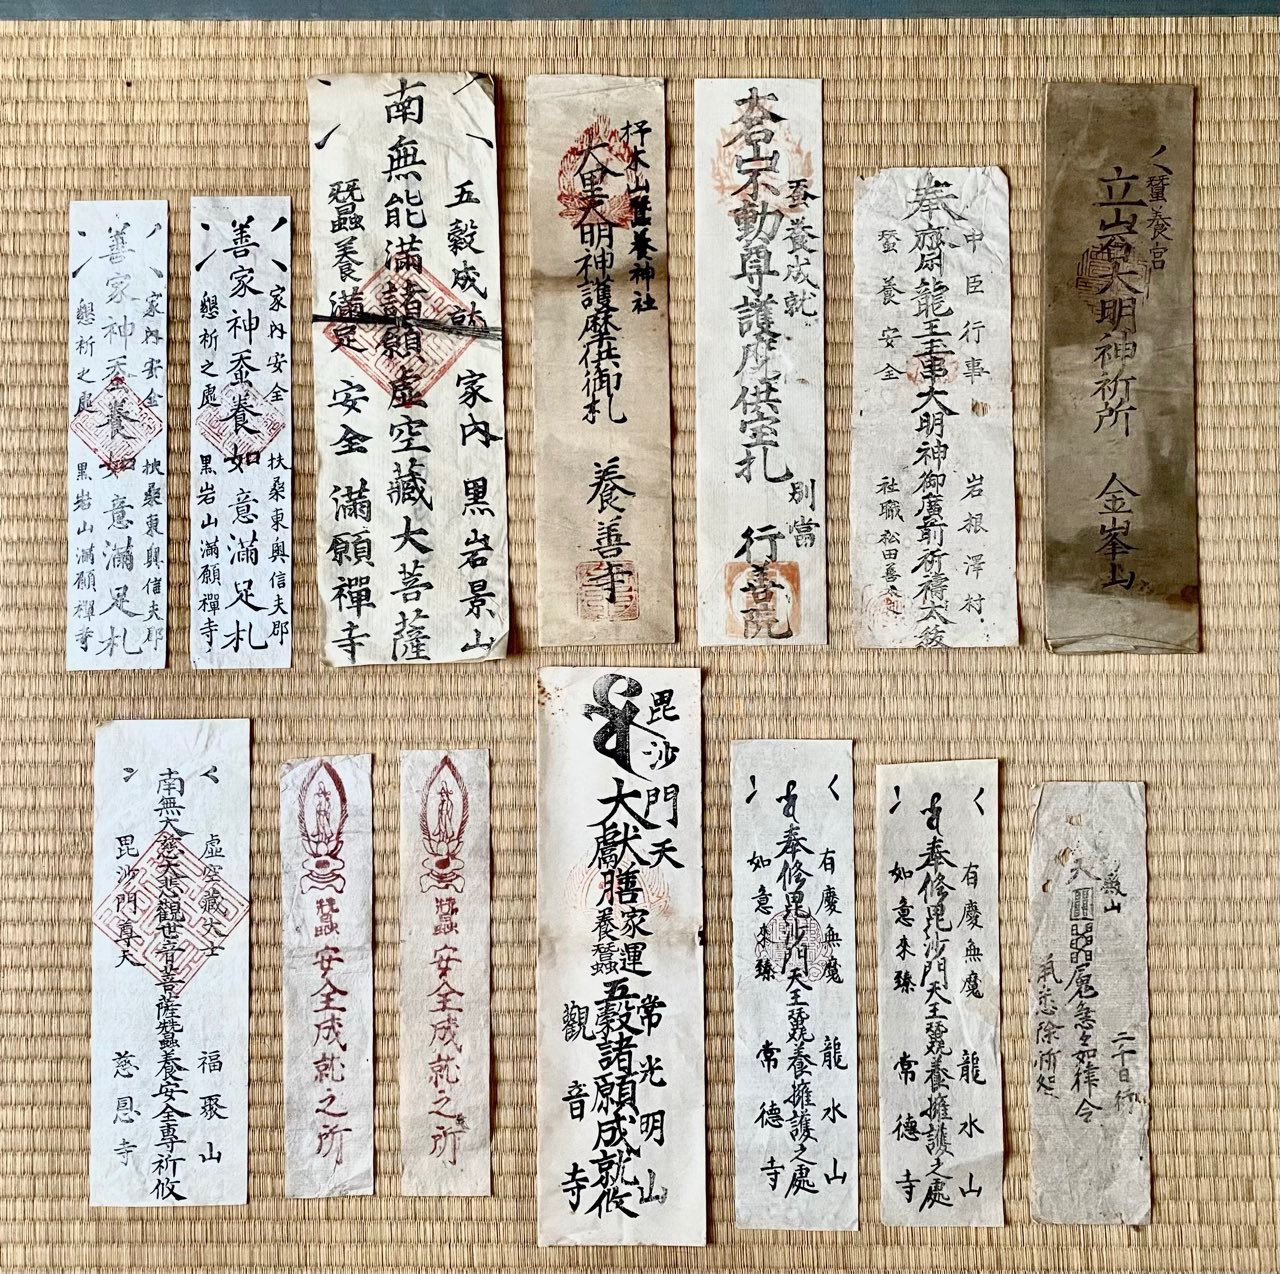 家内安全
扶桑東奥信夫郡
善家神蚕養如意満足札
懇祈之處
黒岩山満願禪寺
家内安全
扶桑東奥信夫郡
善家神蚕養如意満足札
懇祈之處
黒岩山満願禪寺
五穀成就
家内
黒岩景山
南無能満諸願虚空藏大菩薩
蠶養満足
安全
満願禪寺
杼木山蚕養神社
大里大明神護摩供御札
養善寺
蚕養成就
不動尊護摩供宝札
別當
行善院
中臣行事
岩根澤村
奉齋
龍王
大明神御廣前祈禱太
蚕養安全
社職松田
蠶養宮
立山
大明神祈所
金峯山
虚空藏大士
福聚山
南無大慈大悲觀世音菩薩蠶養安全專祈攸
毘沙門尊天
慈恩寺
蠶安全成就之所
蠶安全成就之所
毘沙門天
大獻膳家運五穀諸願成就攸
養蠶
常光明山
觀音寺
有慶無魔
龍水山
奉修毘沙門天王蠶養擁護之處
如急来臻
常德寺
有慶無魔
龍水山
奉修毘沙門天王蠶養擁護之處
如急来臻
常德寺
二十日行
急々如律令